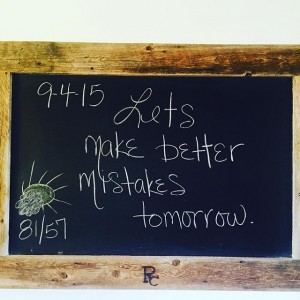 9-4-15
Lets
make better
mistakes
tomorrow.
81/57